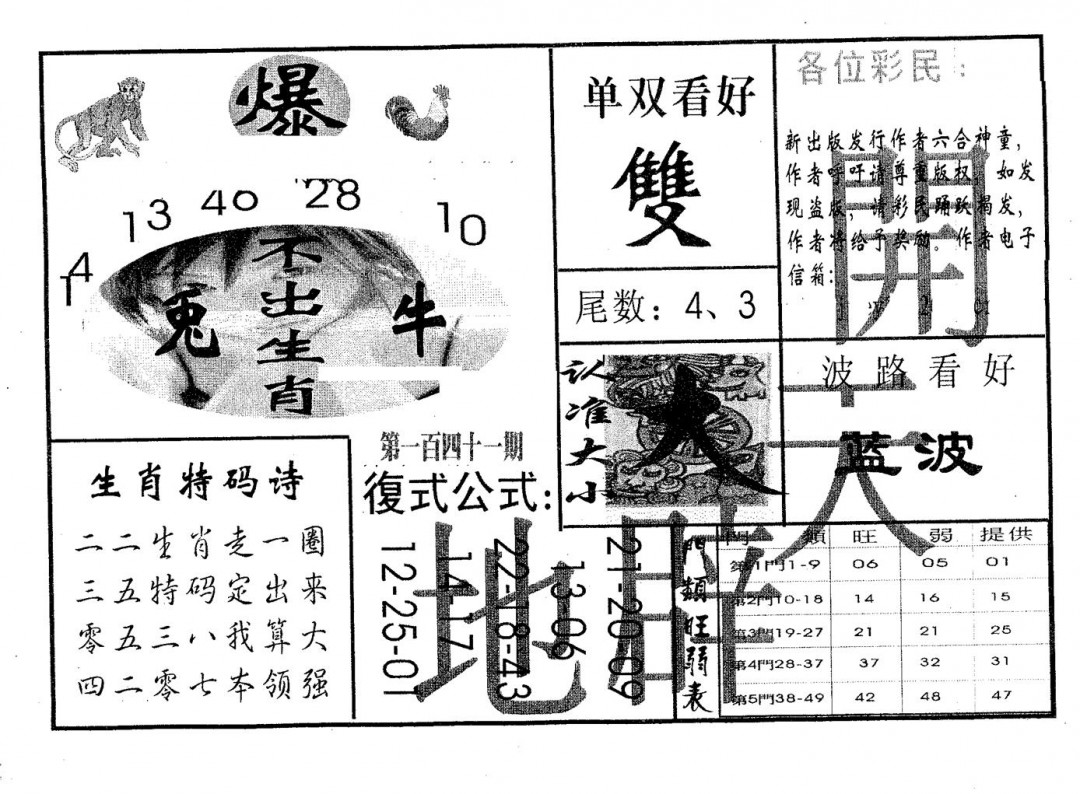 爆
14 13 40 28 10
不出生肖
兔 牛
单双看好
雙
尾数：4、3
各位彩民：
新出版发行作者六合神童，
作者呼吁请尊重版权，如发
现盗版，请彩民踊跃揭发，
作者将给予奖励。作者电子
信箱：
開
认准大小
大
波路看好
蓝波
天
生肖特码诗
二二生肖走一圈
三五特码定出来
零五三八我算大
四二零七本领强
第一百四十一期
復式公式:
12-25-01
14-17
22-18-43
13-06
21-20-09
地
門類旺弱表
門類 旺 弱 提供
第1門1-9 06 05 01
第2門10-18 14 16 15
第3門19-27 21 21 25
第4門28-37 37 32 31
第5門38-49 42 48 47